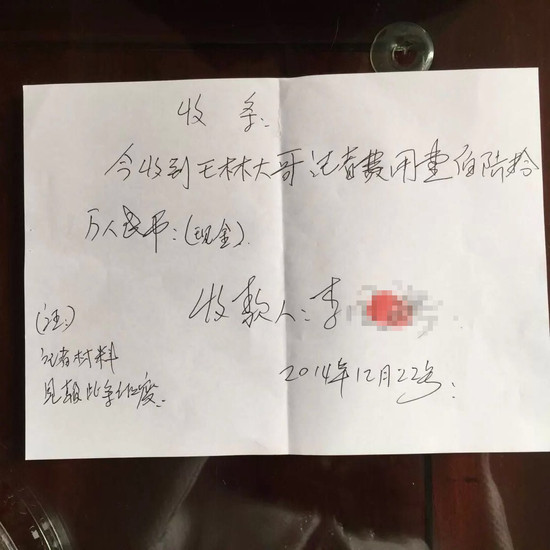 收条:
今收到王林大哥记者费用壹佰陆拾
万人民币:(现金).
收款人:李
2014年12月22号.
(注:)
记者材料
见报此条作废.